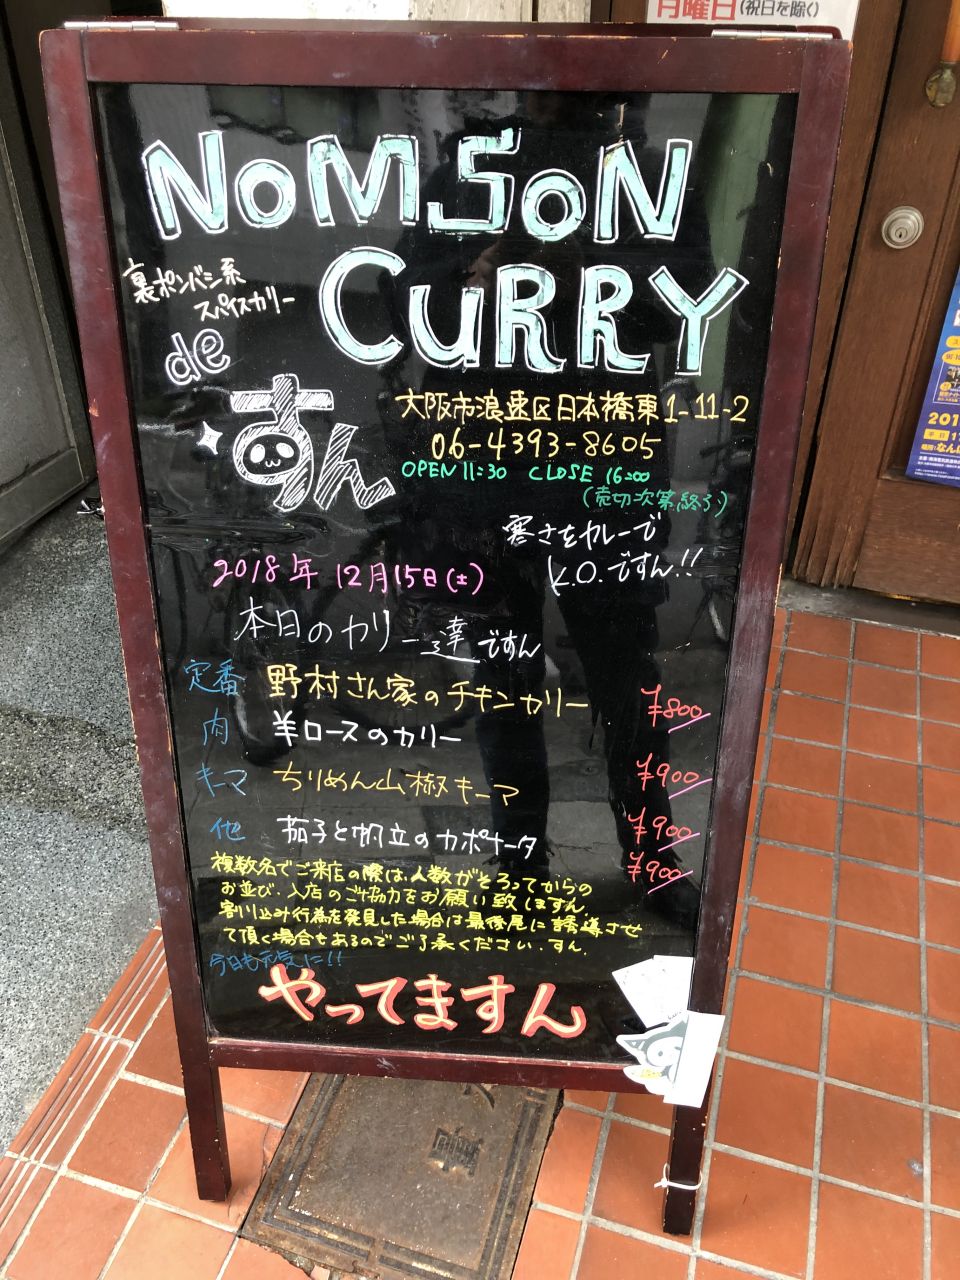 月曜日(祝日を除く)
NOMSON
CURRY
裏ポンバシ系
スパイスカリー
de
すん
大阪市浪速区日本橋東1-11-2
06-4393-8605
OPEN 11:30 CLOSE 16:00
(売切次第終了)
寒さをカレーで
K.O.ですん!!
2018年12月15日(土)
本日のカリー達ですん
定番 野村さん家のチキンカリー ¥800
肉 羊ロースのカリー ¥900
キーマ ちりめん山椒キーマ ¥900
他 茄子と帆立のカポナータ ¥900
複数名でご来店の際は、人数がそろってからの
お並び、入店のご協力をお願い致しますん。
割り込み行為を発見した場合は最後尾に誘導させ
て頂く場合もあるのでご了承ください。すん。
今日も元気に!!
やってますん